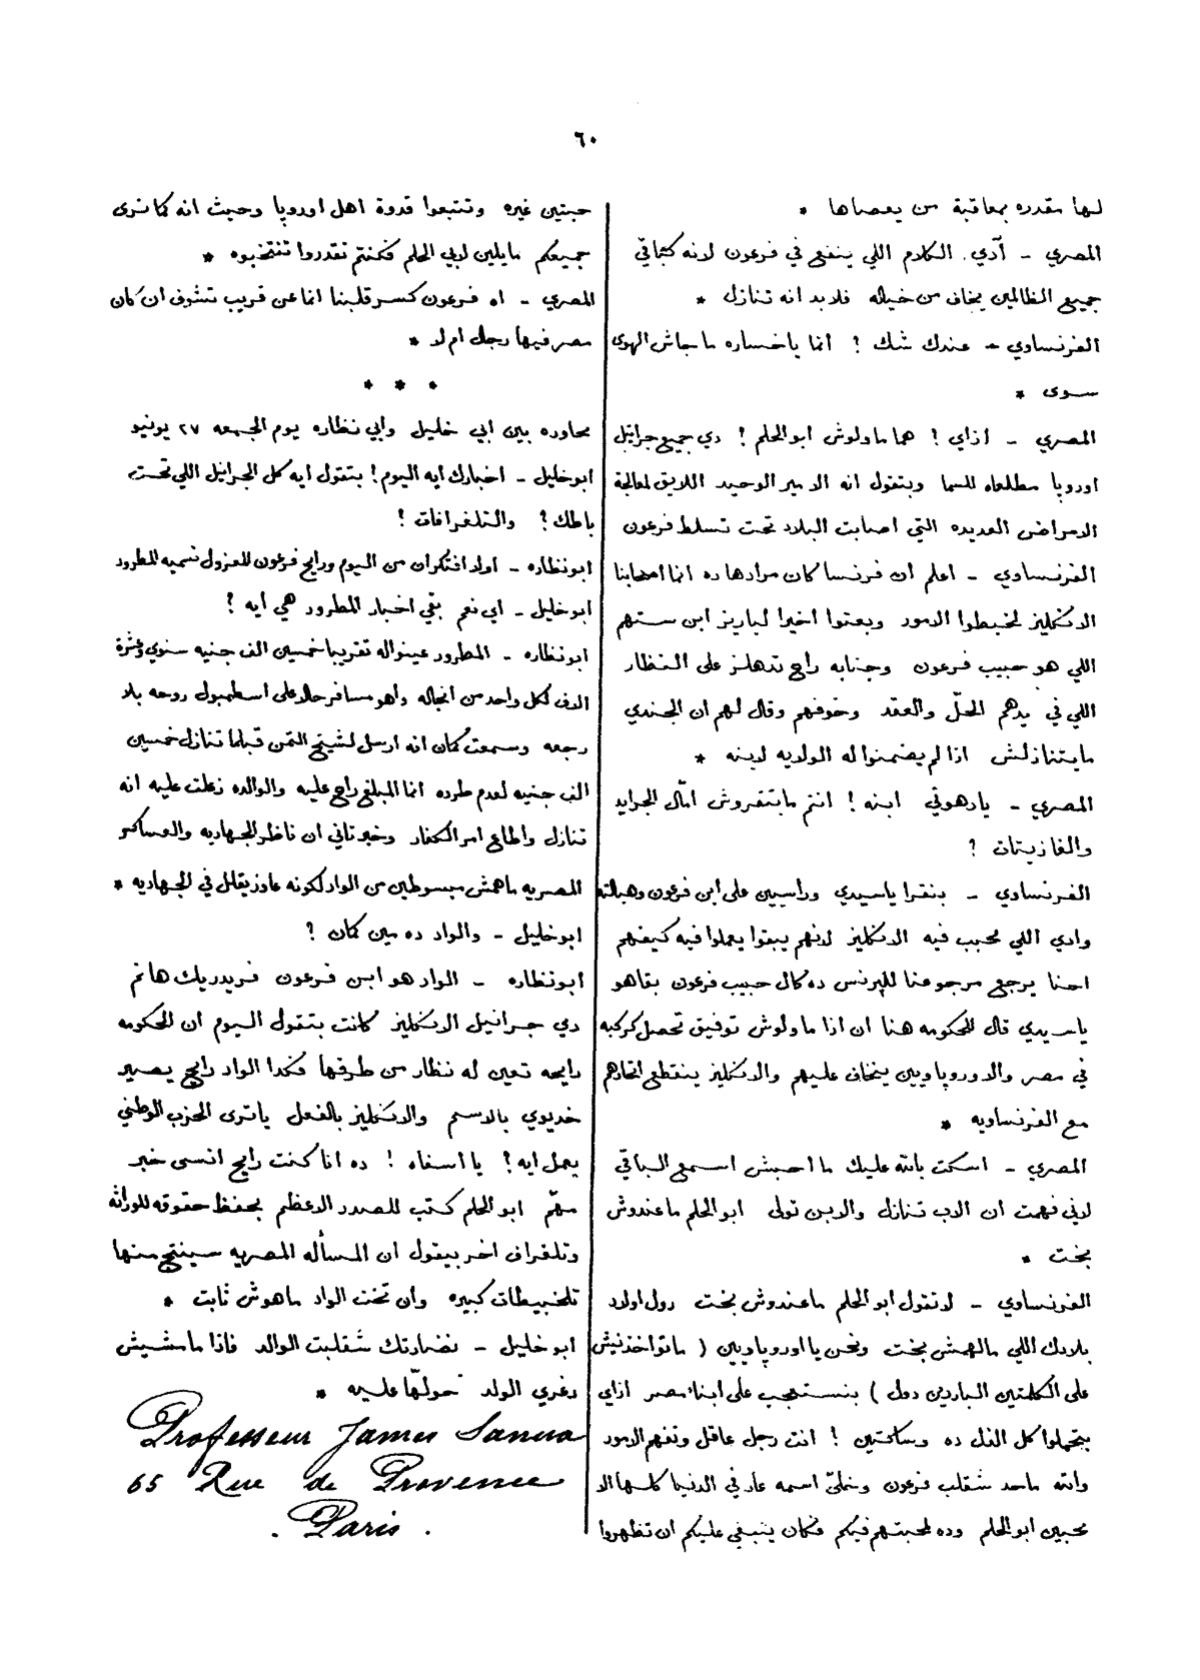 ٦٠
لها مقدره بمعاقبة من يعصاها *
المصري - آدي الكلام اللي ينفع في فرعون لانه كباقي
جميع الظالمين يخاف من خياله فلابد انه تنازل *
الفرنساوي - عندك شك ؟ انما ياخساره ما جاش الهوى
سوى *
المصري - ازاي ! هما ما ولوش ابو الحلم ! دي جميع جرانيل
اوروبا مطلعاه للسما وبتقول انه الامير الوحيد اللايق لمعالجة
الامراض العديده التي اصابت البلاد تحت تسلط فرعون
الفرنساوي - اعلم ان فرنسا كان مرادها ده انما اصحابنا
الانكليز لخبطوا الامور وبعتوا اخيرا لباريز ابن ستهم
اللي هو حبيب فرعون وجنابه راح تدهلز على النظار
اللي في يدهم الحلّ والعقد وخوفهم وقال لهم ان الجندي
مايتنازلش اذا لم يضمنوا له الولايه لابنه *
المصري - يادهوتي ابنه ! انتم مابتقروش امّال الجرايد
والغازيتات ؟
الفرنساوي - بنقرا ياسيدي وراسيين على ابن فرعون وهبالته
وادي اللي محبب فيه الانكليز لانهم يبقوا يعملوا فيه كيفهم
احنا يرجع مرجوعنا للبرنس ده كال حبيب فرعون بقاهو
ياسيدي قال للحكومه هنا ان اذا ما ولوش توفيق تحصل كركبه
في مصر والاوروپاويين ينخاف عليهم والانكليز ينقطع اتحادهم
مع الفرنساويه *
المصري - اسكت بالله عليك ما احبش اسمع الباقي
لاني فهمت ان الاب تنازل والابن تولى ابو الحلم ماعندوش
بخت *
الفرنساوي - لاتقول ابو الحلم ماعندوش بخت دول اولاد
بلادك اللي مالهمش بخت ونحن يا اوروپاويين ( ماتواخذنيش
على الكلمتين الباردين دول ) بنستعجب على ابناء مصر ازاي
بتحملوا كل الذل ده وساكتين ! انت رجل عاقل وتفهم الامور
والله ماحد شقلب فرعون وخلىّ اسمه عار في الدنيا كلها الا
محبين ابو الحلم وده لمحبتهم فيكم فكان ينبغي عليكم ان تظهروا
حبتين غيره وتتبعوا قدوة اهل اوروپا وحيث انه كما نرى
جميعكم مايلين لابي الحلم فكنتم تقدروا تنتخبوه *
المصري - اه فرعون كسر قلبنا انما عن قريب تشوف ان كان
مصر فيها رجال ام لا *
* * *
محاوره بين ابي خليل وابي نظاره يوم الجمعه ٢٧ يونيو
ابو خليل - اخبارك ايه اليوم ! بتقول ايه كل الجرانيل اللي تحت
باطك ؟ والتلغرافات !
ابو نظاره - اولا افتكر ان من اليوم ورايح فرعون المعزول نسميه المطرود
ابو خليل - اي نعم بقي اخبار المطرود هي ايه ؟
ابو نظاره - المطرود عينوا له تقريبا خمسين الف جنيه سنوي وعشرة
الاف لكل واحد من انجاله واهو مسافر حالا على اسطمبول روحه بلا
رجعه وسمعت كمان انه ارسل لشيخ التمن قبلما تنازل خمسين
الف جنيه لعدم طرده انما المبلغ راح عليه والوالده زعلت عليه انه
تنازل واطاع امر الكفار وخبر تاني ان ناظر الجهاديه والعساكر
المصريه ماهش مبسوطين من الواد لكونه عاوز يقلل في الجهاديه *
ابو خليل - والواد ده مين كمان ؟
ابو نظاره - الواد هو ابن فرعون فريدريك هانم
دي جرانيل الانكليز كانت بتقول اليوم ان الحكومه
رايحه تعين له نظار من طرفها فكدا الواد رايح يصير
خديوي بالاسم والانكليز بالفعل ياترى الحزب الوطني
يعمل ايه ؟ يا اسفاه ! ده انا كنت رايح انسى خبر
مهمّ ابو الحلم كتب للصدر الاعظم بحفظ حقوقه للوراثه
وتلغراف اخر بيقول ان المسأله المصريه سينتج منها
تلخبيطات كبيره وان تخت الواد ماهوش ثابت *
ابو خليل - نضارتك شقلبت الوالد فاذا مامشيش
دغري الولد حولّها عليه *
Professeur James Sanua
65 Rue de Provence
. Paris .